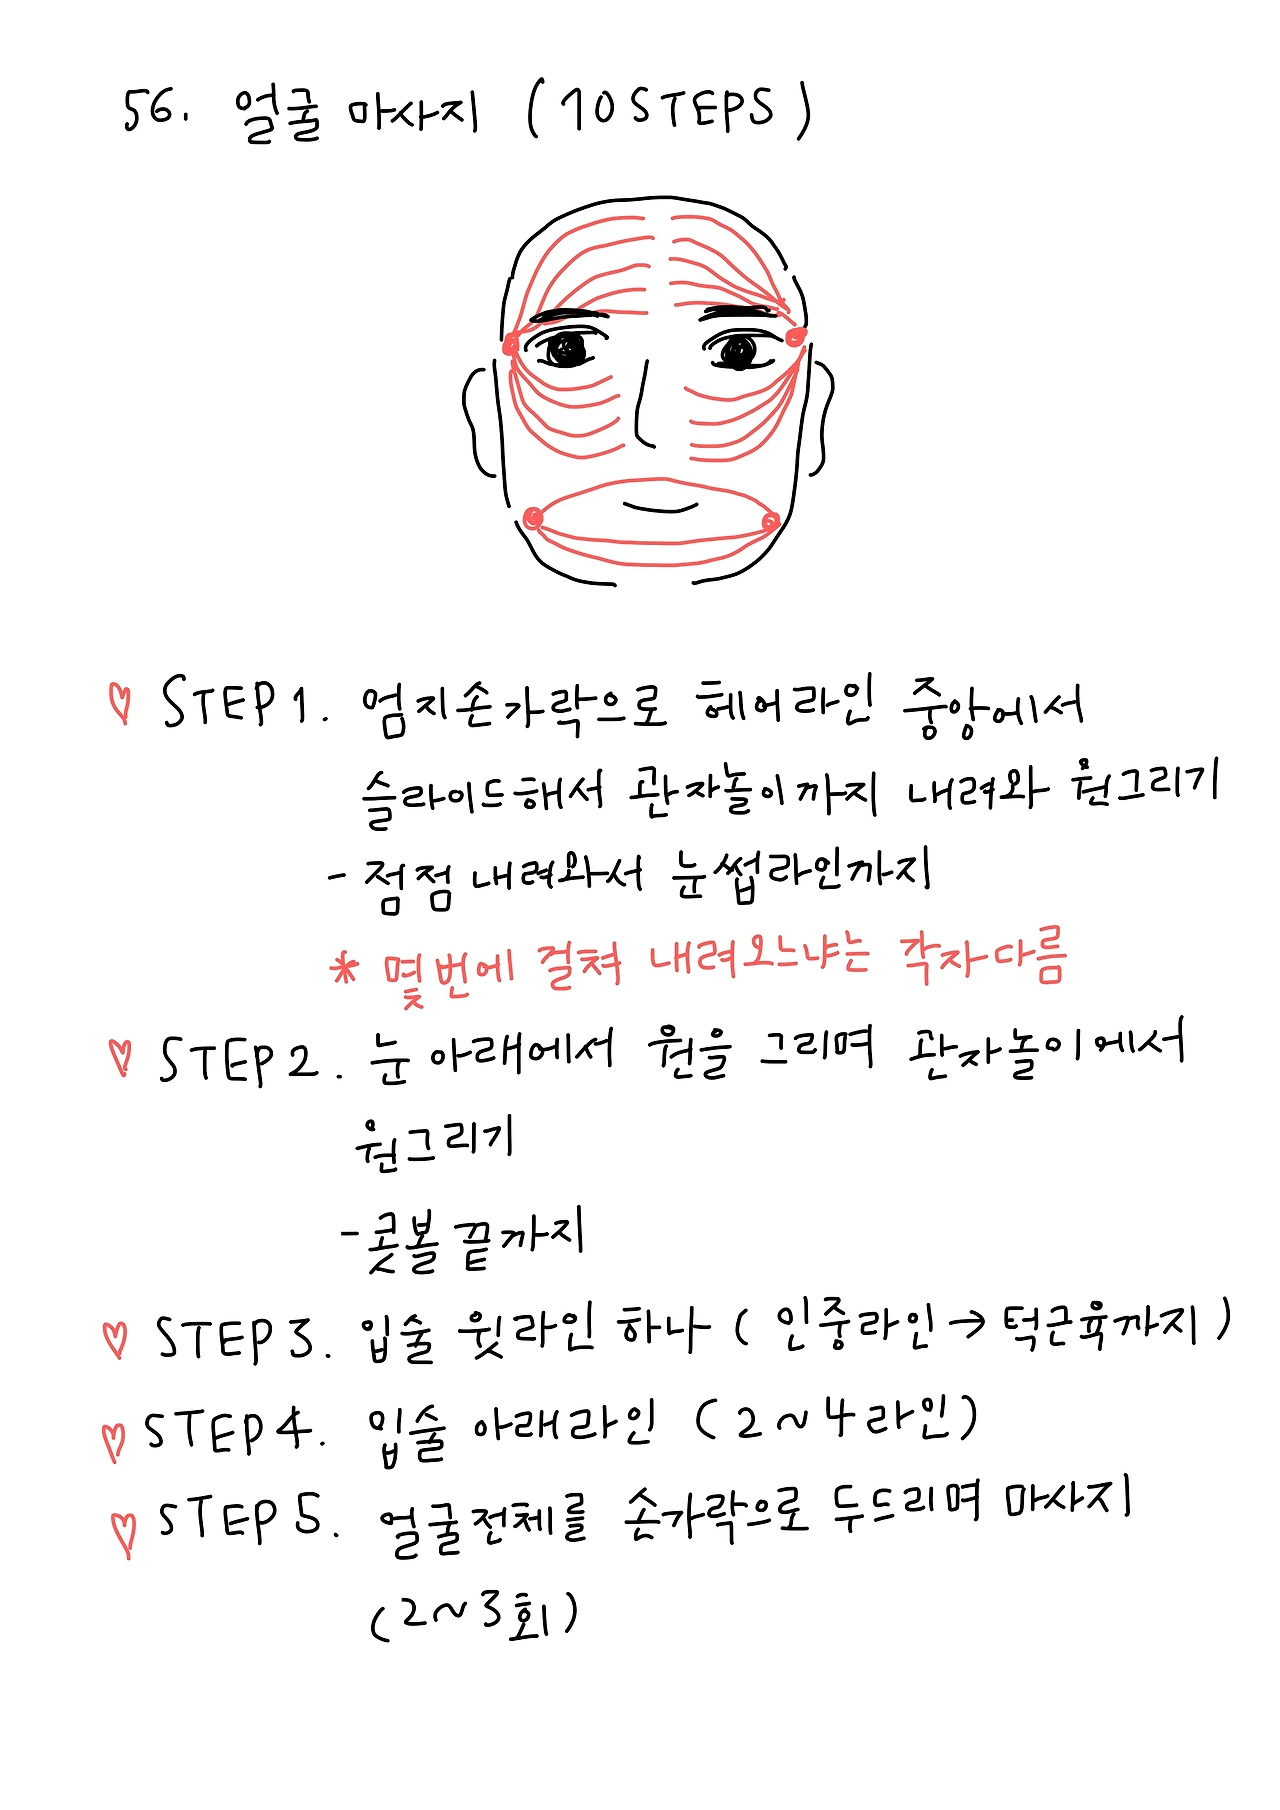 56. 얼굴 마사지 (10 STEPS)
♡ STEP 1. 엄지손가락으로 헤어라인 중앙에서
슬라이드해서 관자놀이까지 내려와 원그리기
- 점점 내려와서 눈썹라인까지
* 몇번에 걸쳐 내려오느냐는 각자다름
♡ STEP 2. 눈 아래에서 원을 그리며 관자놀이에서
원그리기
- 콧볼 끝까지
♡ STEP 3. 입술 윗라인 하나 ( 인중라인 → 턱근육까지 )
♡ STEP 4. 입술 아래라인 (2~4라인)
♡ STEP 5. 얼굴전체를 손가락으로 두드리며 마사지
(2~3회)